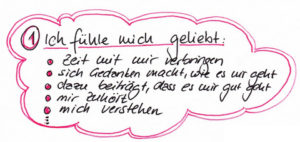 1 Ich fühle mich geliebt:
• Zeit mit mir verbringen
• sich Gedanken macht, wie es mir geht
• dazu beiträgt, dass es mir gut geht
• mir zuhört
• mich verstehen
⋮